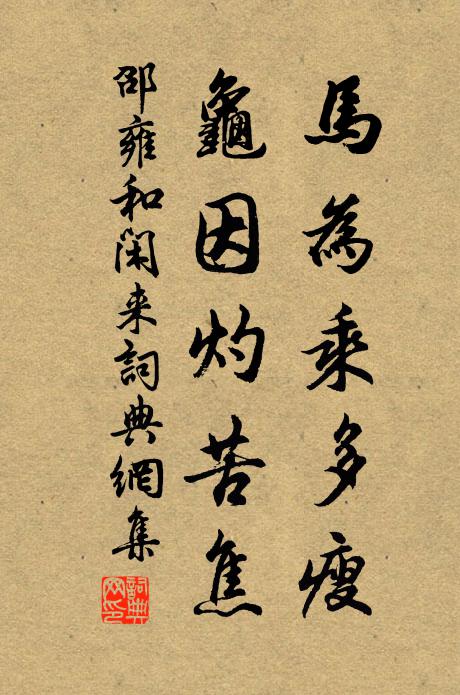 馬為乘多瘦
龜因灼苦焦
邵雍和閑来詞典網集
詞典网印